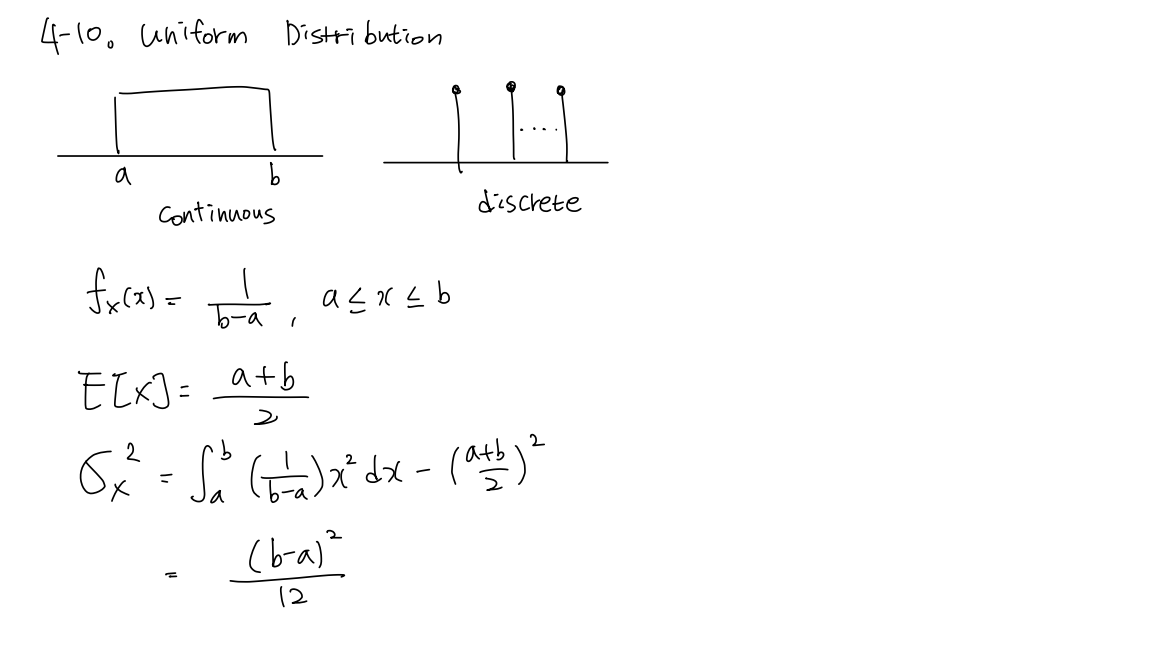 4-10. Uniform Distribution
a b
....
continuous
discrete
f_X(x) = 1/(b-a), a ≤ x ≤ b
E[X] = (a+b)/2
σ_X^2 = ∫_a^b (1/(b-a)) x^2 dx - ((a+b)/2)^2
= (b-a)^2/12